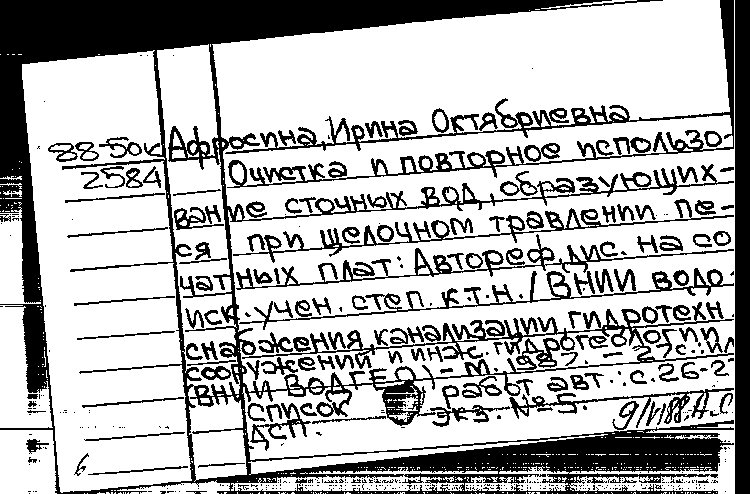 88-50к Афросина, Ирина Октябриевна
2584 Очистка и повторное использо-
вание сточных вод, образующих-
ся при щелочном травлении пе-
чатных плат: Автореф. дис. на со
иск. учен. степ. к.т.н. / ВНИИ водо-
снабжения, канализации, гидротехн
сооружений и инж. гидрогеологии
(ВНИИ ВОДГЕО). - М. 1987. - 27с.: ил
список работ авт.: с. 26-2
ДСП. экз. № 5.
9/VI88.А.С
6